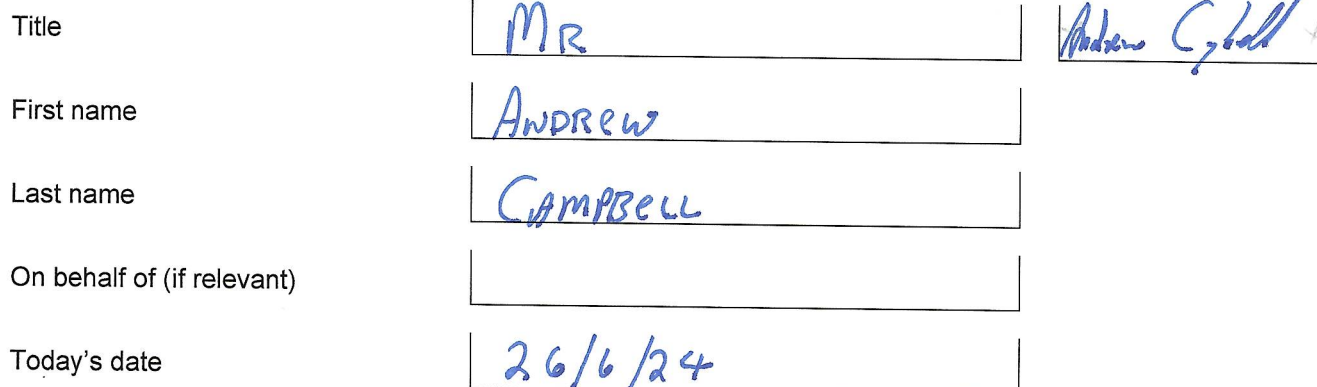 Title MR Andrew
First name ANDREW
Last name CAMPBELL
On behalf of (if relevant)
Today's date 26/6/24